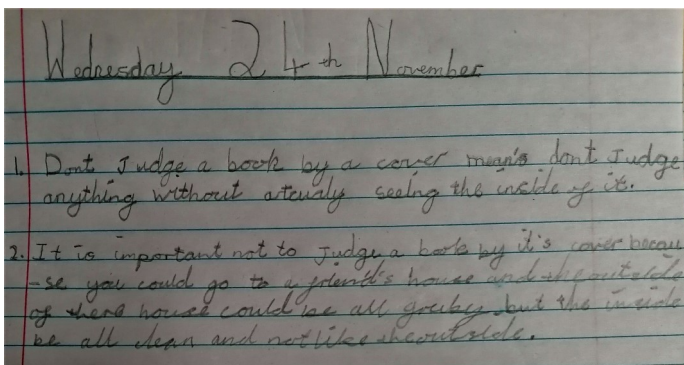 Wednesday 24th November
1. Dont Judge a book by a cover mean's dont Judge
anything without actualy seeing the inside of it.
2. It is important not to Judge a book by it's cover becau
-se you could go to a friend's house and the outside
of there house could be all but the inside
be all clean and not like the outside.